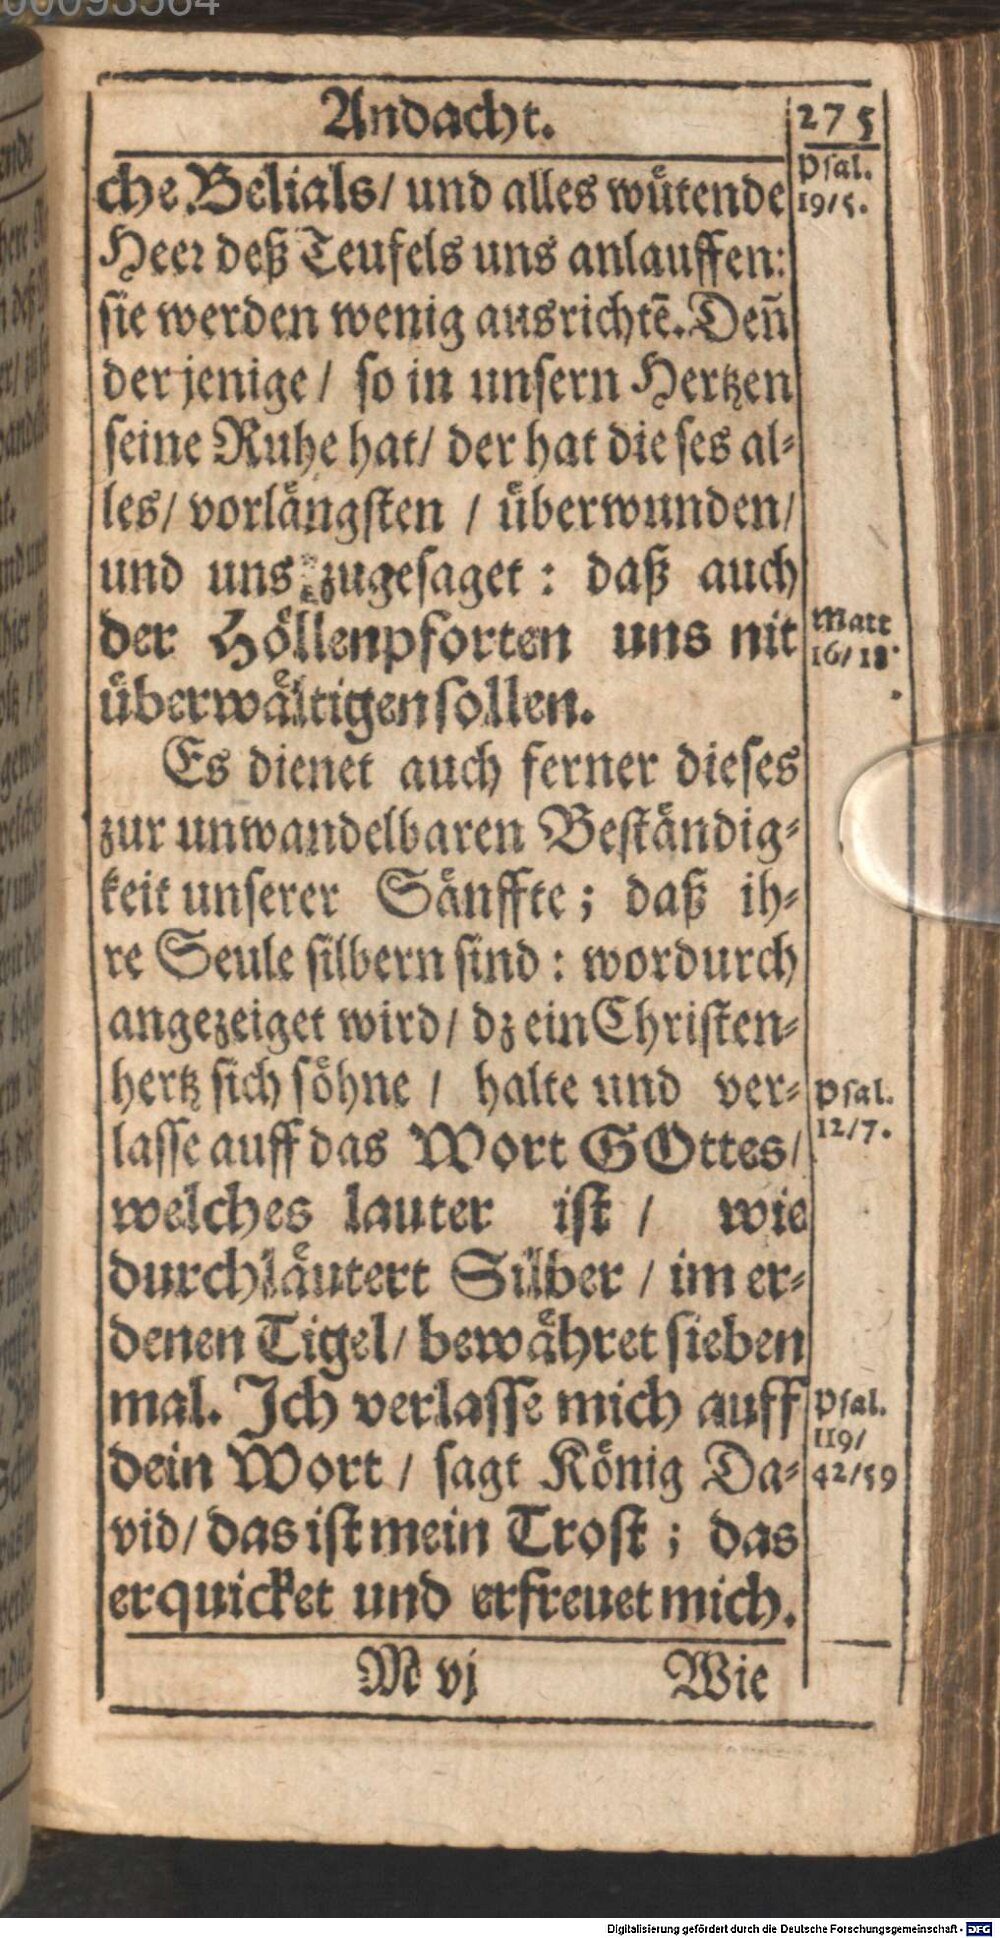 Andacht. 275
che Belials/ und alles wuͤtende
Heer deß Teufels uns anlauffen:
sie werden wenig ausrichtẽ. Deñ
derjenige/ so in unsern Hertzen
seine Ruhe hat/ der hat dieses al-
les/ vorlaͤngsten / uͤberwunden/
und uns zugesaget: daß auch
der Hoͤllenpforten uns nit
uͤberwaͤltigen sollen.
Es dienet auch ferner dieses
zur unwandelbaren Bestaͤndig-
keit unserer Saͤnffte; daß ih-
re Seule silbern sind: wordurch
angezeiget wird/ dz ein Christen-
hertz sich soͤhne / halte und ver-
lasse auff das Wort GOttes/
welches lauter ist / wie
durchlaͤutert Silber / im er-
denen Tigel/ bewaͤhret sieben
mal. Ich verlasse mich auff
dein Wort / sagt Koͤnig Da-
vid/ das ist mein Trost; das
erquicket und erfreuet mich.
M vj Wie
Psal.
19/5.
Matt
16/18.
Psal.
12/7.
Psal.
119/
42/59
Digitalisierung gefördert durch die Deutsche Forschungsgemeinschaft - DFG